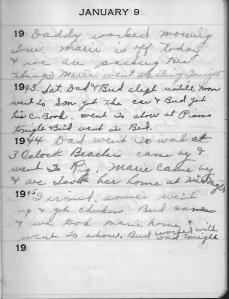 JANUARY 9
19 Daddy worked morning
Tour. Marie is off today
& we are packing
things Marie went skating Tonight
1943. Dad & Bud slept until noon
went to get the car & Bud got
his C. Book. went to show at
Tonight & Bud went to Bed.
1944 Dad went to work at
3 O clock Beachie came by &
went To Pig. Marie came by
& we Took her home at
1945
up & got chicken Bud
& we took Marie home &
went to show. Bud worked with
Dad Tonight
19